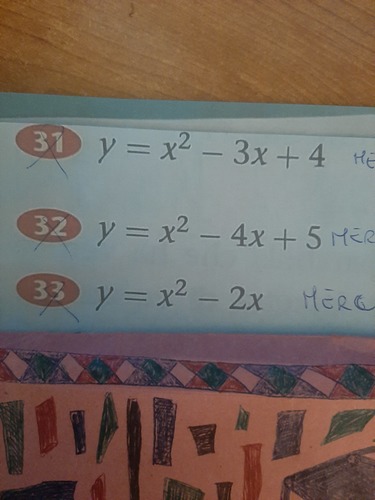 31 y = x² − 3x + 4
32 y = x² − 4x + 5 MER
33 y = x² − 2x MERC